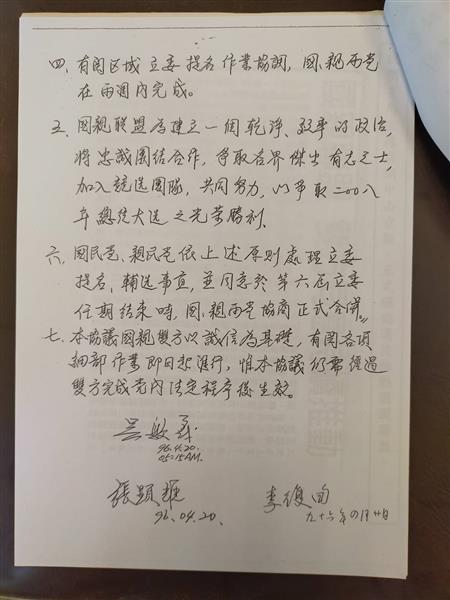 四、有関区域立委提名作業協調，國、親两党
在兩週內完成。
五、國親联盟為建立一個乾淨、效率的政治，
將忠誠團結合作，爭取各界傑出有志之士，
加入競選團隊，共同努力，以爭取二00八
年總统大选之光荣勝利。
六、國民党、親民党依上述原則處理立委
提名、輔选事宜，並同意於第六屆立委
任期結束時，國、親两党協商正式合併。
七、本協議國親雙方以誠信為基礎，有関各項
細部作業即日起進行，惟本協議仍需經過
雙方完成党內法定程序後生效。
吳敦義
96.4.20.
05:15AM.
張顯耀
96.04.20.
李復甸
九十六年四月廿日